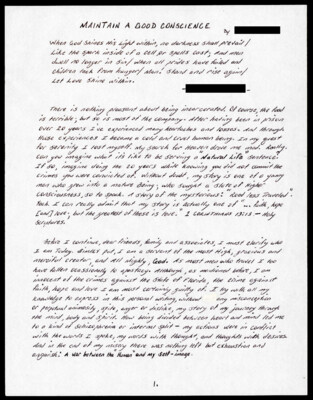 MAINTAIN A GOOD CONSCIENCE
By
When God shines His light within, no darkness shall prevail!
Like the spark inside of a cell or spoils cast; and men
dwell no longer in sin/ when all prides have failed and
children lack from hunger/ Men: Stand and rise again/
Let Love shine within.
There is nothing pleasant about being incarcerated. Of course, the food
is terrible; but so is most of the company. After having been in prison
over 20 years I've experienced many heartaches and losses. And through
those experiences I became a cold and even human being. In my quest
for serenity I lost myself. My search for heaven drove me mad. Sanity.
Can you imagine what it's like to be serving a "Natural Life" sentence?
If so, imagine doing me 20 years while knowing you did not commit the
crimes you were convicted of. Without doubt, my story is one of a young
man who grew into a mature being; who sought a "state of higher
consciousness, so to speak. A story of the mysterious "Road less Traveled".
Yet I can readily admit that my story is actually one of "... Faith, hope
[and] love; but the greatest of these is love." I CORINTHIANS 13:13 - Holy
Scriptures.
Before I continue, dear friends, family and associates, I must clarify who
I am today. Mind's Put, I am a servant of the most High, gracious and
merciful creator, and All Mighty, God. As most men who travel I too
have fallen occasionally to apostasy. Although, as mentioned before, I am
innocent of the crimes against the State of Florida, the crime against
faith, hope and love I am most certainly guilty of. I try with all my
knowledge to express in this personal writing, without any misconception
or perpetual animosity, spite, anger or dislike, my story of my journey through
the mind, body and spirit. How being divided between heart and mind led me
to a kind of schizophrenia or internal split - my actions were in conflict
with the words I spoke, my words with thought, and thoughts with desires
And in the end of my misery there was nothing left but exhaustion and
anguish: A war between the "human" and my self-image.
1.